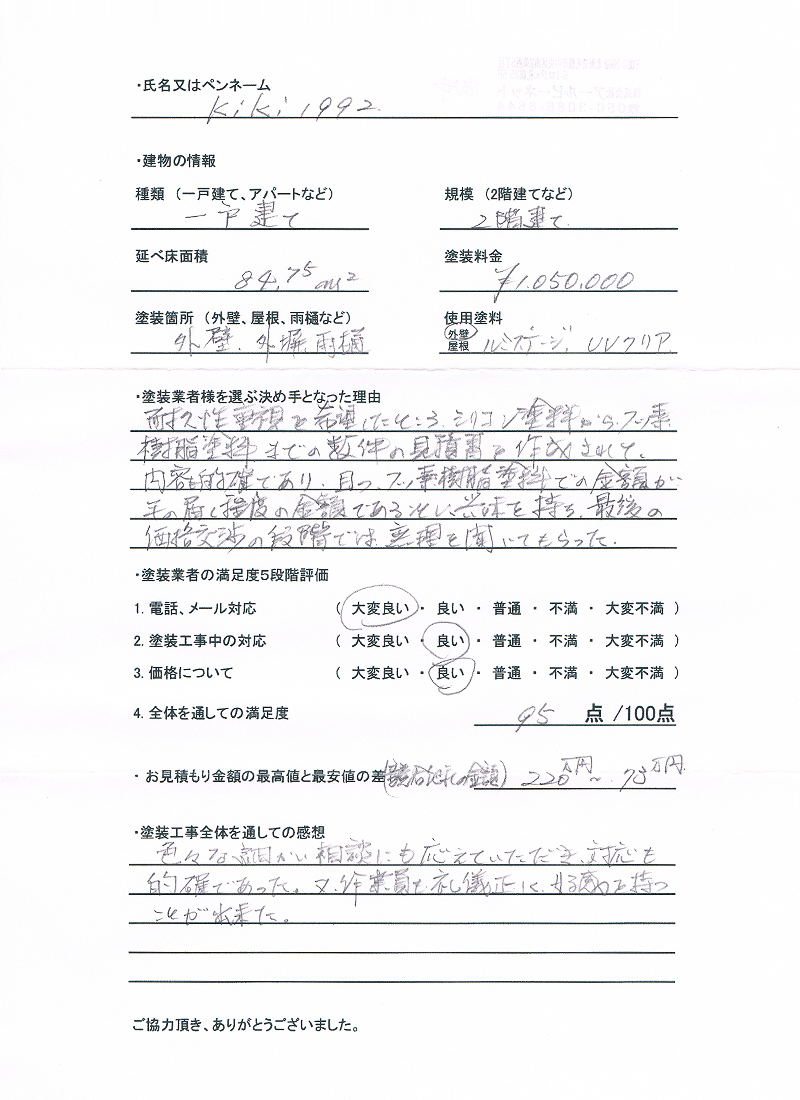 ・氏名又はペンネーム
kiki 1992
・建物の情報
種類 (一戸建て、アパートなど) 規模 (2階建てなど)
一戸建て 2階建て
延べ床面積 塗装料金
84.75m² ¥1.050.000
塗装箇所 (外壁、屋根、雨樋など) 使用塗料
外壁.外塀.雨樋 外壁 屋根 ルミステージ, UVクリア
・塗装業者様を選ぶ決め手となった理由
耐久性重視を希望したところ、シリコン塗料から、フッ素
樹脂塗料までの数件の見積書を作成されて、
内容も的確であり、且つ、フッ素樹脂塗料での金額が
手の届く程度の金額である 興味を持ち、最後の
価格交渉の段階では、無理を聞いてもらった.
・塗装業者の満足度5段階評価
1. 電話、メール対応 ( 大変良い ・ 良い ・ 普通 ・ 不満 ・ 大変不満 )
2. 塗装工事中の対応 ( 大変良い ・ 良い ・ 普通 ・ 不満 ・ 大変不満 )
3. 価格について ( 大変良い ・ 良い ・ 普通 ・ 不満 ・ 大変不満 )
4. 全体を通しての満足度 95 点 /100点
・お見積もり金額の最高値と最安値の差 の金額) 220万円~73万円
・塗装工事全体を通しての感想
色々な細かい相談にも応えていただき、対応も
的確であった。又、作業員も礼儀正しく、好感を持つ
ことが出来た。
ご協力頂き、ありがとうございました。